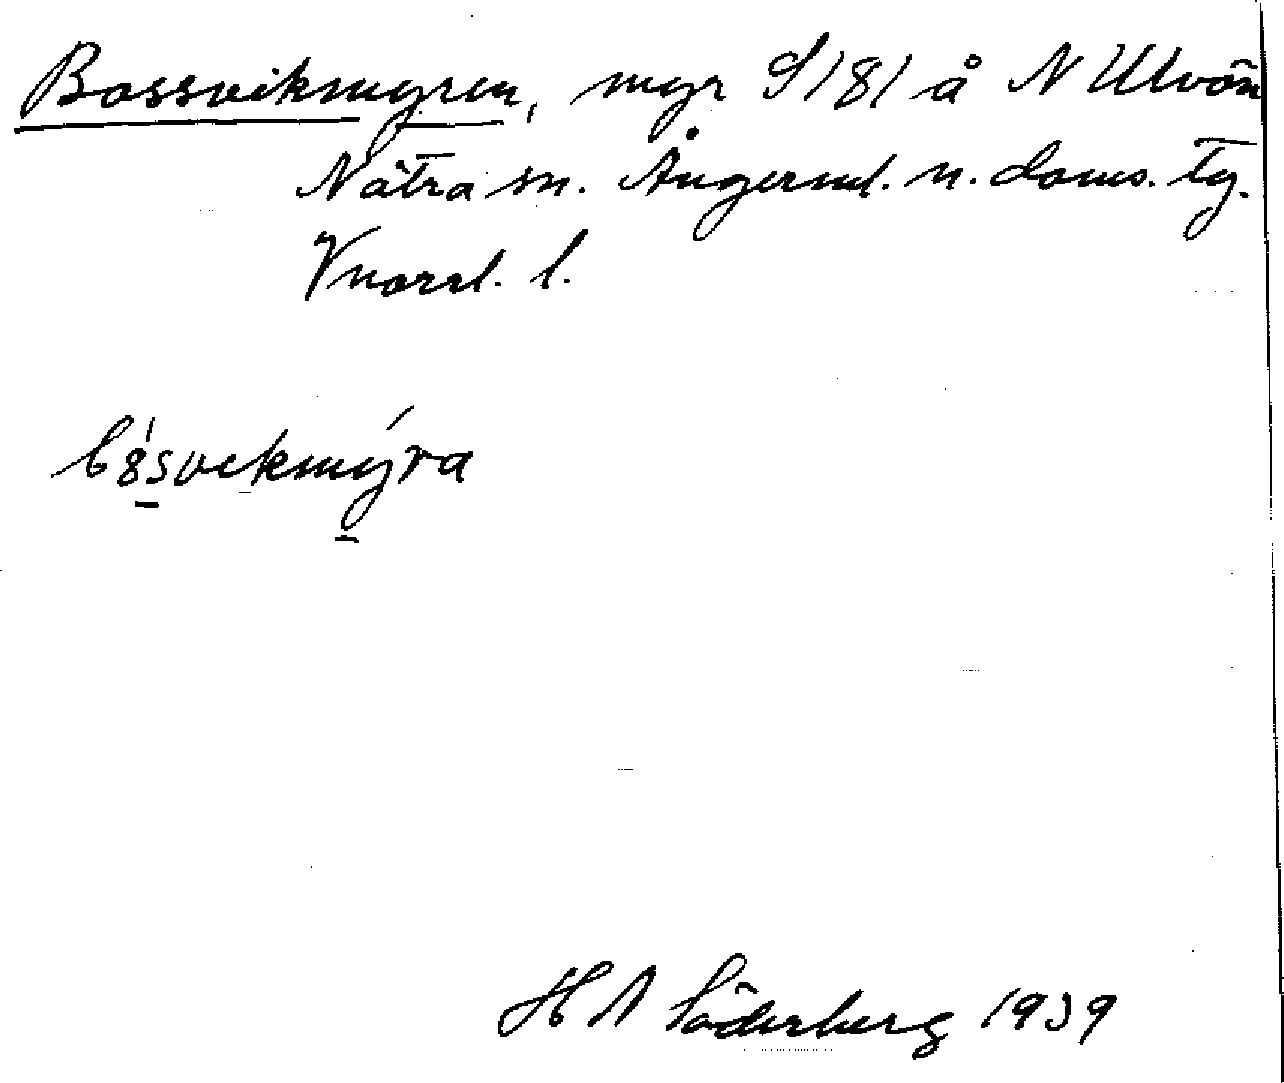 Bossvikmyren, myr S/8/ å N Ulvön
Nätra sn. Ångerml. n. doms. tg.
Vnorrl. l.
b8́svekmýra
H A Söderberg 1939